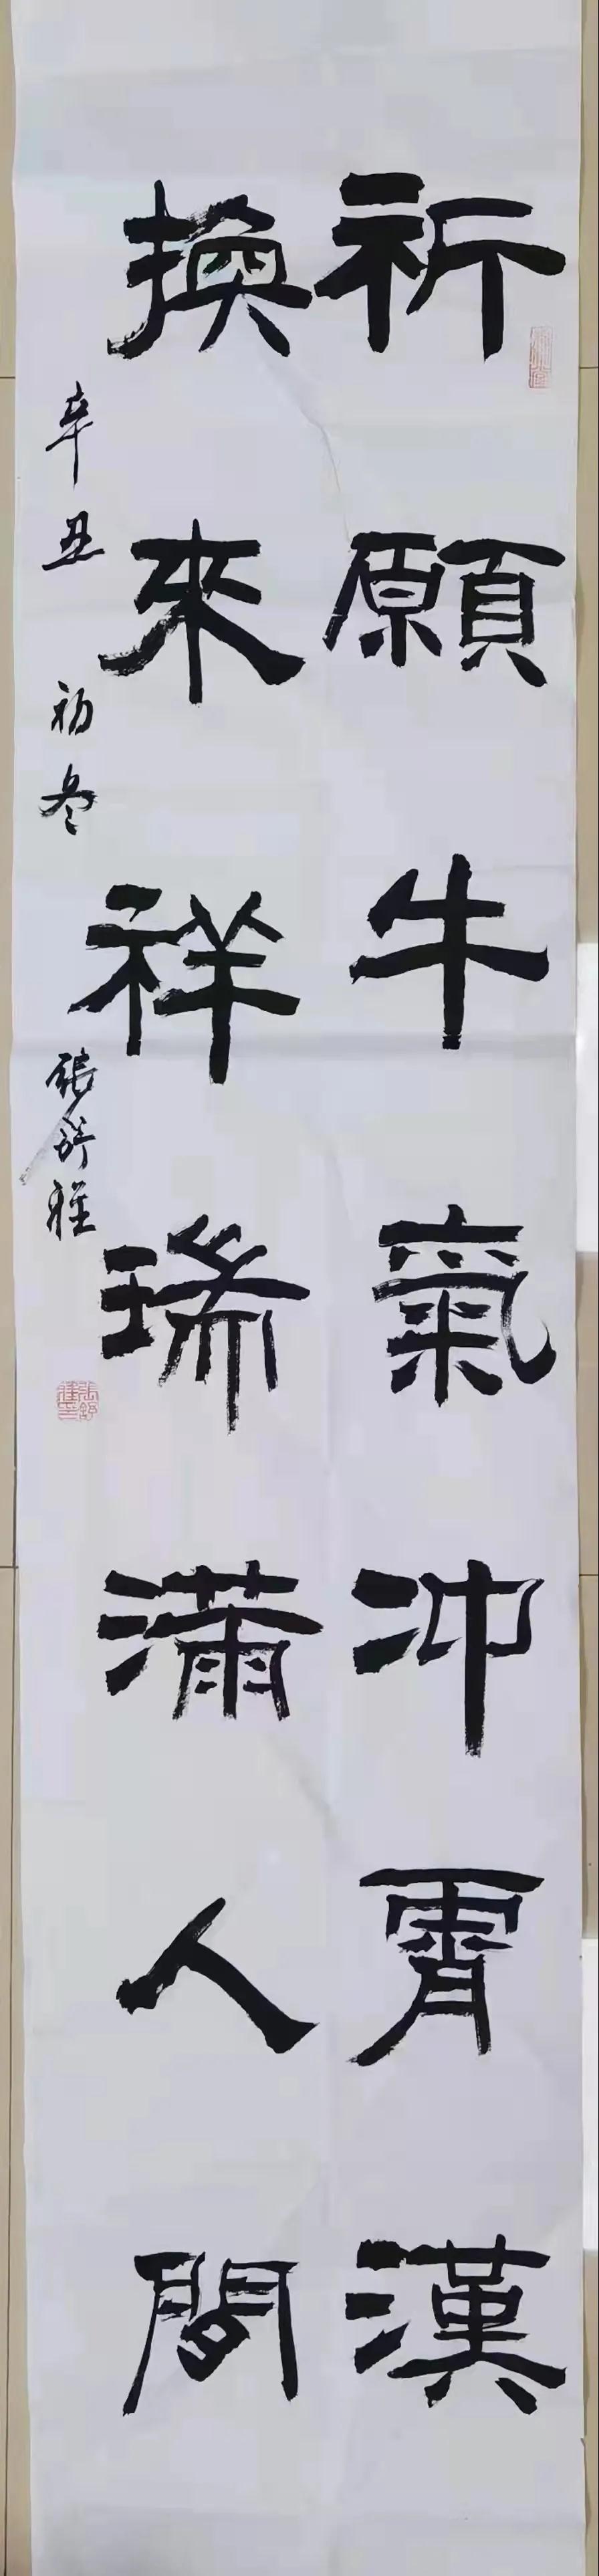 祈願牛氣沖霄漢
換來祥瑞滿人間
辛丑初冬張舒雅